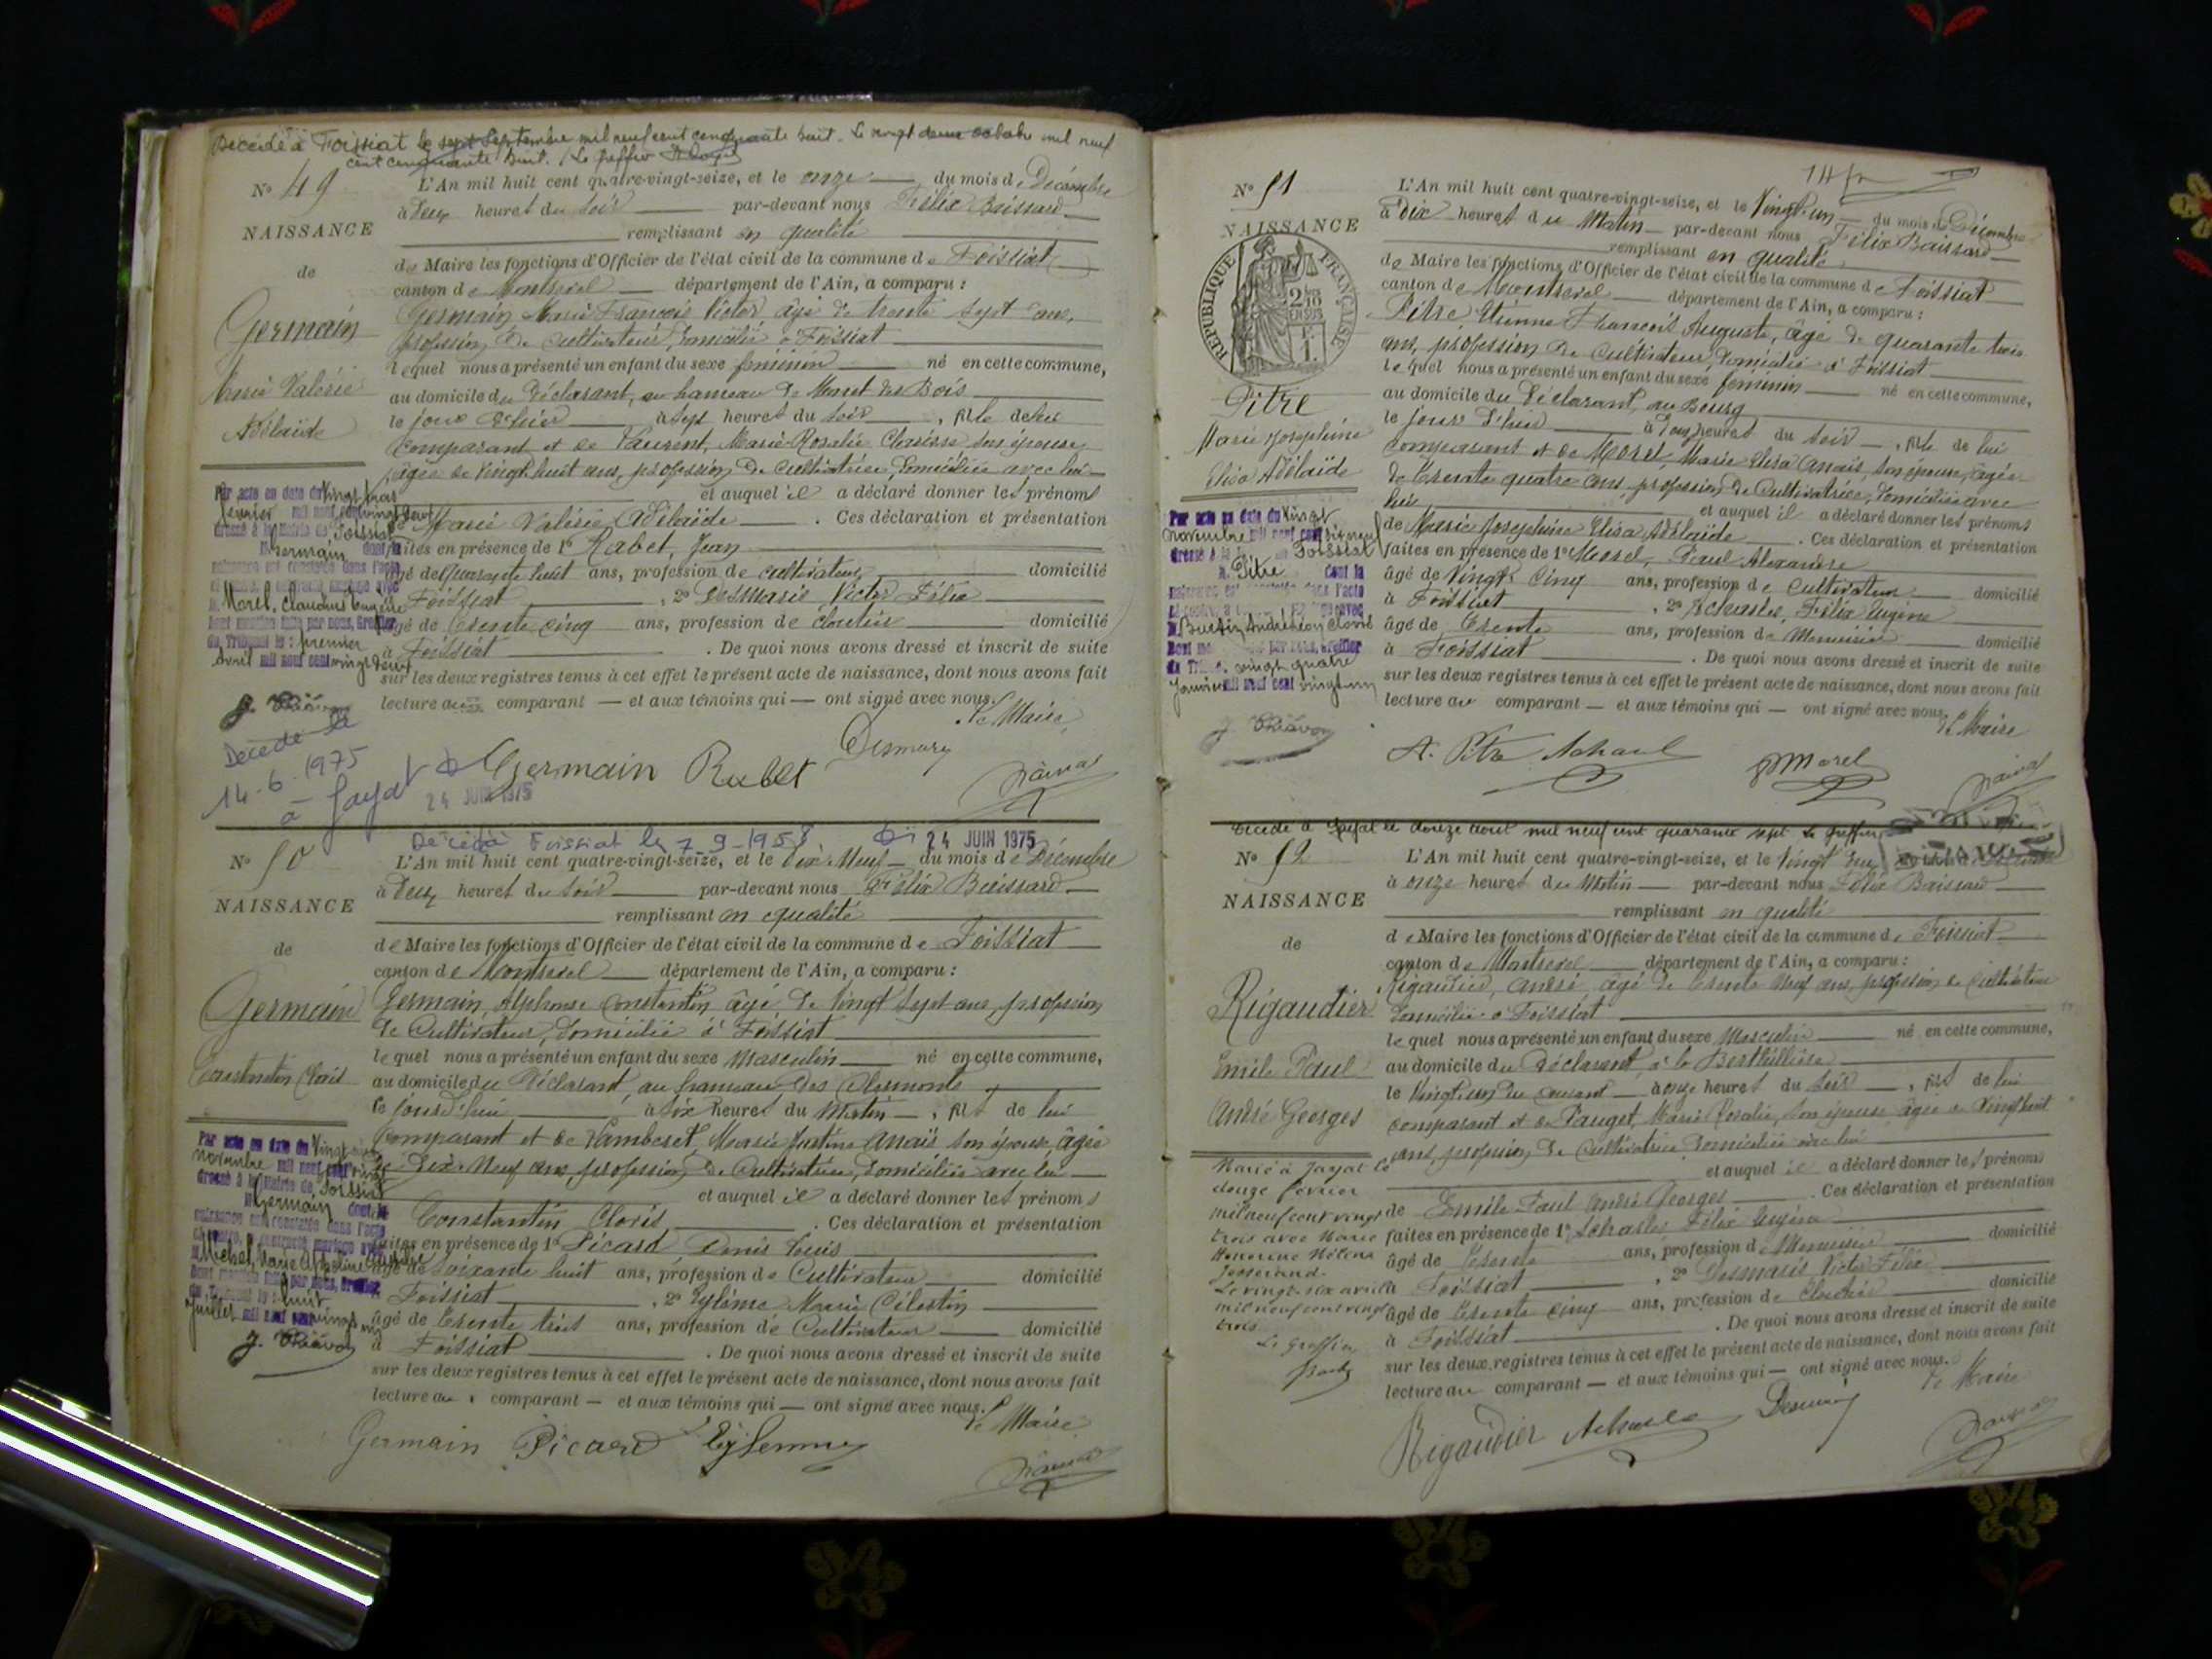 Décédé à Foissiat le sept Septembre mil neuf cent cinquante huit. Le vingt deux octobre mil neuf
cent cinquante huit. Le Greffier
N° 49
NAISSANCE
de
Germain
Marie Valérie
Adélaïde
L'An mil huit cent quatre-vingt-seize, et le onze du mois de Décembre
à deux heures du soir par-devant nous Félix Baissard
remplissant en qualité
de Maire les fonctions d'Officier de l'état civil de la commune de Foissiat
canton de Montrevel département de l'Ain, a comparu :
Germain Marie François Victor âgé de trente sept ans,
profession de Cultivateur, domicilié à Foissiat
lequel nous a présenté un enfant du sexe féminin né en cette commune,
au domicile du déclarant, au hameau de Monet des Bois
le jour d'hier à sept heures du soir, fille de lui
comparant et de Laurent, Marie-Rosalie Clarisse son épouse
âgée de vingt huit ans, profession de cultivatrice, domiciliée avec lui
et auquel il a déclaré donner les prénoms
de Marie Valérie Adélaïde. Ces déclaration et présentation
faites en présence de 1° Rabet, Jean
âgé de quarante huit ans, profession de cultivateur domicilié
à Foissiat, 2° Desmaris Victor Félix
âgé de trente cinq ans, profession de cloutier domicilié
à Foissiat. De quoi nous avons dressé et inscrit de suite
sur les deux registres tenus à cet effet le présent acte de naissance, dont nous avons fait
lecture au comparant — et aux témoins qui — ont signé avec nous.
Le Maire
Par acte en date du vingt trois
février mil neuf cent vingt deux
dressé à la Mairie de Foissiat
M. Germain dont la
naissance est constatée dans l'acte
ci-contre, a contracté mariage avec
M. Morel, Claudius Eugène
Dont mention faite par nous, Greffier
du Tribunal le : premier
Avril mil neuf cent vingt deux
Décédée le
14-6-1975
à Jayat
24 JUIN 1975
Germain Rabet Desmaris
Décédé à Foissiat le 7-9-1958 24 JUIN 1975
N° 50
NAISSANCE
de
Germain
Constantin Cloris
L'An mil huit cent quatre-vingt-seize, et le dix Neuf du mois de Décembre
à deux heures du soir par-devant nous Félix Baissard
remplissant en qualité
de Maire les fonctions d'Officier de l'état civil de la commune de Foissiat
canton de Montrevel département de l'Ain, a comparu :
Germain, Alphonse Constantin âgé de vingt sept ans, profession
de Cultivateur, domicilié à Foissiat
lequel nous a présenté un enfant du sexe masculin né en cette commune,
au domicile du déclarant, au hameau des
le jour d'hui à six heures du Matin, fils de lui
comparant et de Lamberet, Marie Justine Anaïs son épouse, âgée
de dix Neuf ans, profession de Cultivatrice, domiciliée avec lui
et auquel il a déclaré donner les prénoms
Constantin Cloris. Ces déclaration et présentation
faites en présence de 1° Picard Denis Louis
âgé de soixante huit ans, profession de Cultivateur domicilié
Foissiat, 2° Marie Célestin
âgé de trente trois ans, profession de Cultivateur domicilié
à Foissiat. De quoi nous avons dressé et inscrit de suite
sur les deux registres tenus à cet effet le présent acte de naissance, dont nous avons fait
lecture au comparant — et aux témoins qui — ont signé avec nous.
Le Maire
Par acte en date du vingt
novembre mil neuf cent vingt
dressé à la Mairie de Foissiat
M. Germain dont la
naissance est constatée dans l'acte
ci-contre, a contracté mariage avec
Michel, Marie
Dont mention faite par nous, Greffier
du Tribunal le : huit
Juillet mil neuf cent vingt un
Germain Picard
N° 51
NAISSANCE
RÉPUBLIQUE FRANÇAISE
Pitre
Marie Joséphine
Elisa Adélaïde
L'An mil huit cent quatre-vingt-seize, et le Vingt-un du mois de Décembre
à Dix heures du Matin par-devant nous Félix Baissard
remplissant en qualité
de Maire les fonctions d'Officier de l'état civil de la commune de Foissiat
canton de Montrevel département de l'Ain, a comparu :
Pitre, Etienne François Auguste, âgé de quarante trois
ans, profession de Cultivateur, domicilié à Foissiat
lequel nous a présenté un enfant du sexe féminin né en cette commune,
au domicile du déclarant, au Bourg
le jour d'hier à heures du soir, fille de lui
comparant et de Morel, Marie Elisa Anaïs, son épouse, âgée
de trente quatre ans, profession de Cultivatrice, domiciliée avec
lui et auquel il a déclaré donner les prénoms
de Marie Joséphine Elisa Adélaïde. Ces déclaration et présentation
faites en présence de 1° Morel, Paul Alexandre
âgé de vingt cinq ans, profession de Cultivateur domicilié
à Foissiat, 2° Félix Eugène
âgé de trente ans, profession de Menuisier domicilié
à Foissiat. De quoi nous avons dressé et inscrit de suite
sur les deux registres tenus à cet effet le présent acte de naissance, dont nous avons fait
lecture au comparant — et aux témoins qui — ont signé avec nous.
Le Maire
Par acte en date du vingt
novembre mil neuf cent
dressé à Foissiat
M. Pitre dont la
vingt quatre
Janvier mil neuf cent vingt un
A. Pitre Morel
Décédé à Jayat le douze Août mil neuf cent quarante sept Le Greffier
N° 52
NAISSANCE
de
Rigaudier
Emile Paul
André Georges
L'An mil huit cent quatre-vingt-seize, et le Vingt deux
à onze heures du Matin par-devant nous Félix Baissard
remplissant en qualité
de Maire les fonctions d'Officier de l'état civil de la commune de Foissiat
canton de Montrevel département de l'Ain, a comparu :
Rigaudier, André, âgé de trente Neuf ans, profession de Cultivateur
domicilié à Foissiat
lequel nous a présenté un enfant du sexe Masculin né en cette commune,
au domicile du déclarant, à la
le Vingt un du courant à onze heures du soir, fils de lui
comparant et de Pauget, Marie Rosalie, son épouse âgée de Vingt huit
ans, profession de Cultivatrice domiciliée avec lui
et auquel il a déclaré donner les prénoms
de Emile Paul André Georges. Ces déclaration et présentation
faites en présence de 1° Félix Eugène
âgé de trente ans, profession de Menuisier domicilié
à Foissiat, 2° Desmaris Victor Félix
âgé de trente cinq ans, profession de Cloutier domicilié
à Foissiat. De quoi nous avons dressé et inscrit de suite
sur les deux registres tenus à cet effet le présent acte de naissance, dont nous avons fait
lecture au comparant — et aux témoins qui — ont signé avec nous.
Le Maire
Marié à Jayat le
douze février
mil neuf cent vingt
trois avec Marie
Honorine Hélène
Josserand.
Le vingt-six avril
mil neuf cent vingt
trois
Le Greffier
Rigaudier